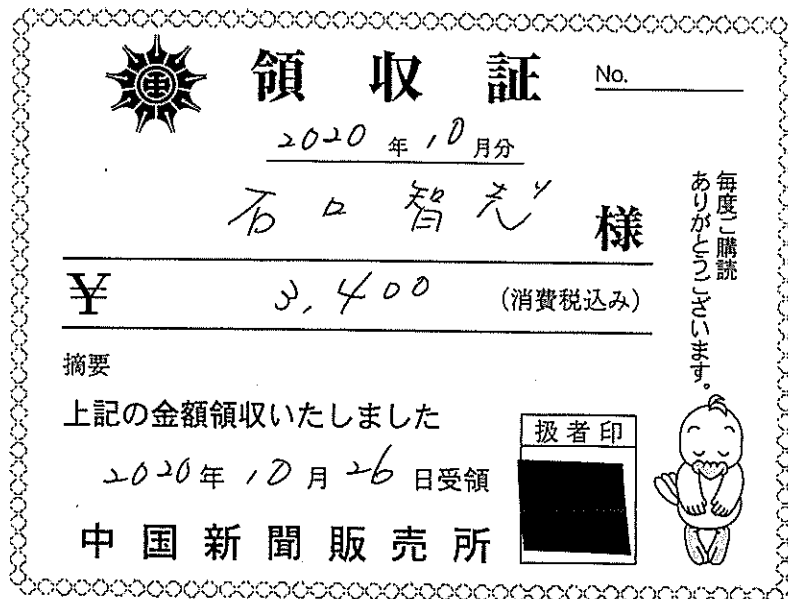 領収証
No.
2020年10月分
石口智志 様
¥ 3,400 (消費税込み)
摘要
上記の金額領収いたしました
2020年10月26日受領
中国新聞販売所
扱者印
毎度ご購読
ありがとうございます。